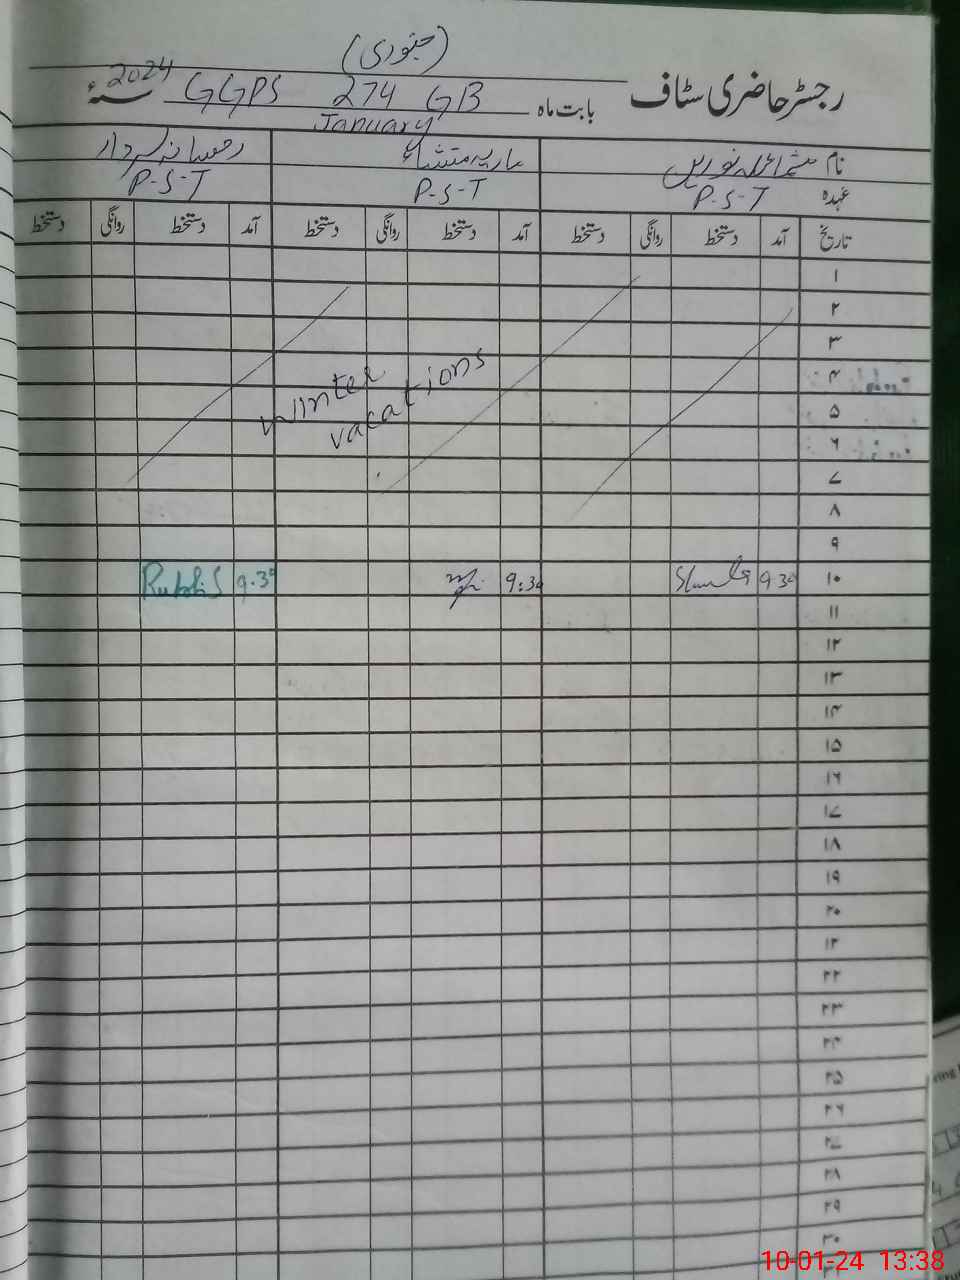 (جنوری)
رجسٹر حاضری سٹاف بابت ماہ GGPS 274 GB 2024 سنہء
January
نام شمائلہ نورین ماریہ منشاء رخسانہ سردار
عہدہ P-S-T P-S-T P-S-T
تاریخ آمد دستخط روانگی دستخط آمد دستخط روانگی دستخط آمد دستخط روانگی دستخط
۱
۲
۳
۴
winter
۵
vacations
۶
۷
۸
۹
۱۰ 9.30 9:30 9.30
۱۱
۱۲
۱۳
۱۴
۱۵
۱۶
۱۷
۱۸
۱۹
۲۰
۲۱
۲۲
۲۳
۲۴
۲۵
۲۶
۲۷
۲۸
۲۹
۳۰
10-01-24 13:38